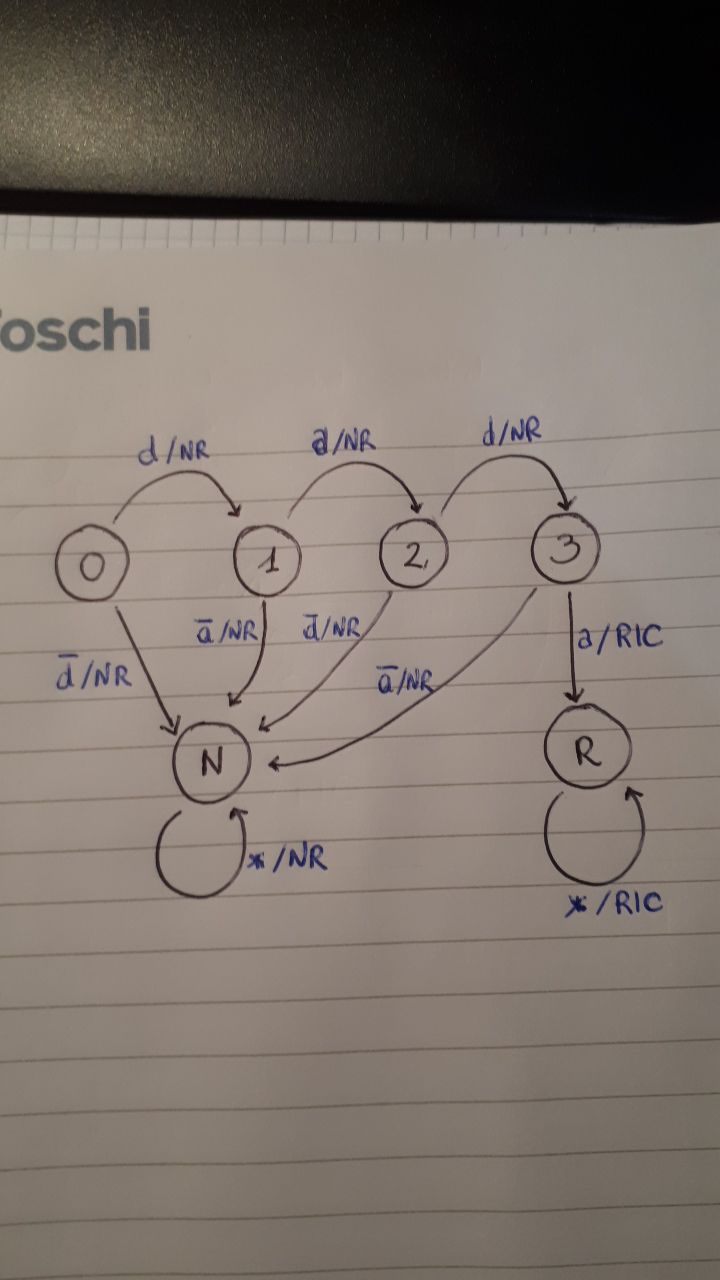 oschi
d/NR a/NR d/NR
0 1 2 3
d̅/NR a̅/NR d̅/NR a̅/NR a/RIC
N R
*/NR
*/RIC